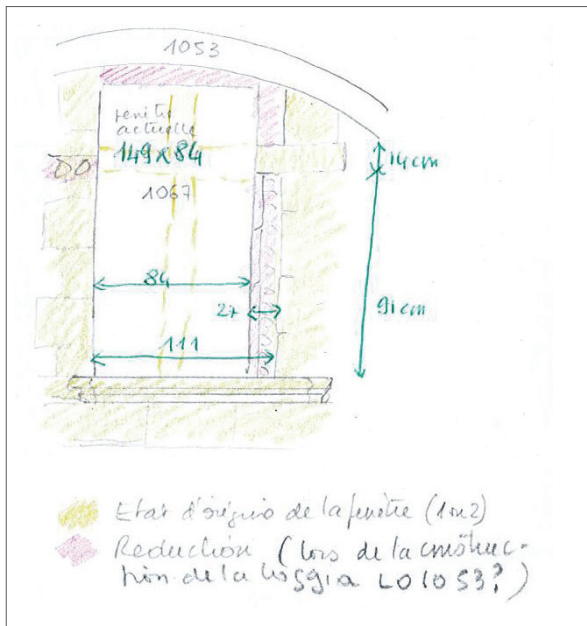 1053
fenêtre
actuelle
149x84
14cm
1067
84
91cm
27
111
Etat d'origine de la fenêtre (1 ou 2)
Reduction (lors de la construc-
tion de la loggia LO1053?)